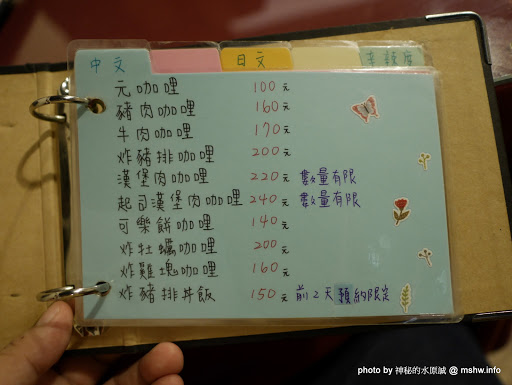 中文
日文
辛辣度
元咖哩 100元
豬肉咖哩 160元
牛肉咖哩 170元
炸豬排咖哩 200元
漢堡肉咖哩 220元 數量有限
起司漢堡肉咖哩 240元 數量有限
可樂餅咖哩 140元
炸牡蠣咖哩 200元
炸雞塊咖哩 160元
炸豬排丼飯 150元 前2天預約限定
photo by 神秘的水原誠 @ mshw.info